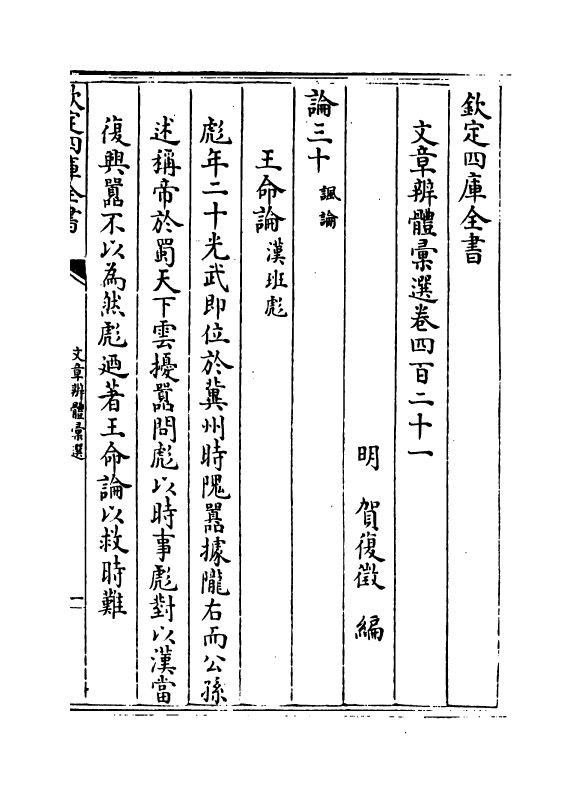 欽定四庫全書
文章辨體彙選卷四百二十一
明 賀復徵 編
論三十 諷論
王命論 漢班彪
彪年二十光武即位於冀州時隗囂據隴右而公孫
述稱帝於蜀天下雲擾囂問彪以時事彪對以漢當
復興囂不以為然彪迺著王命論以救時難
欽定四庫全書
文章辨體彙選
一